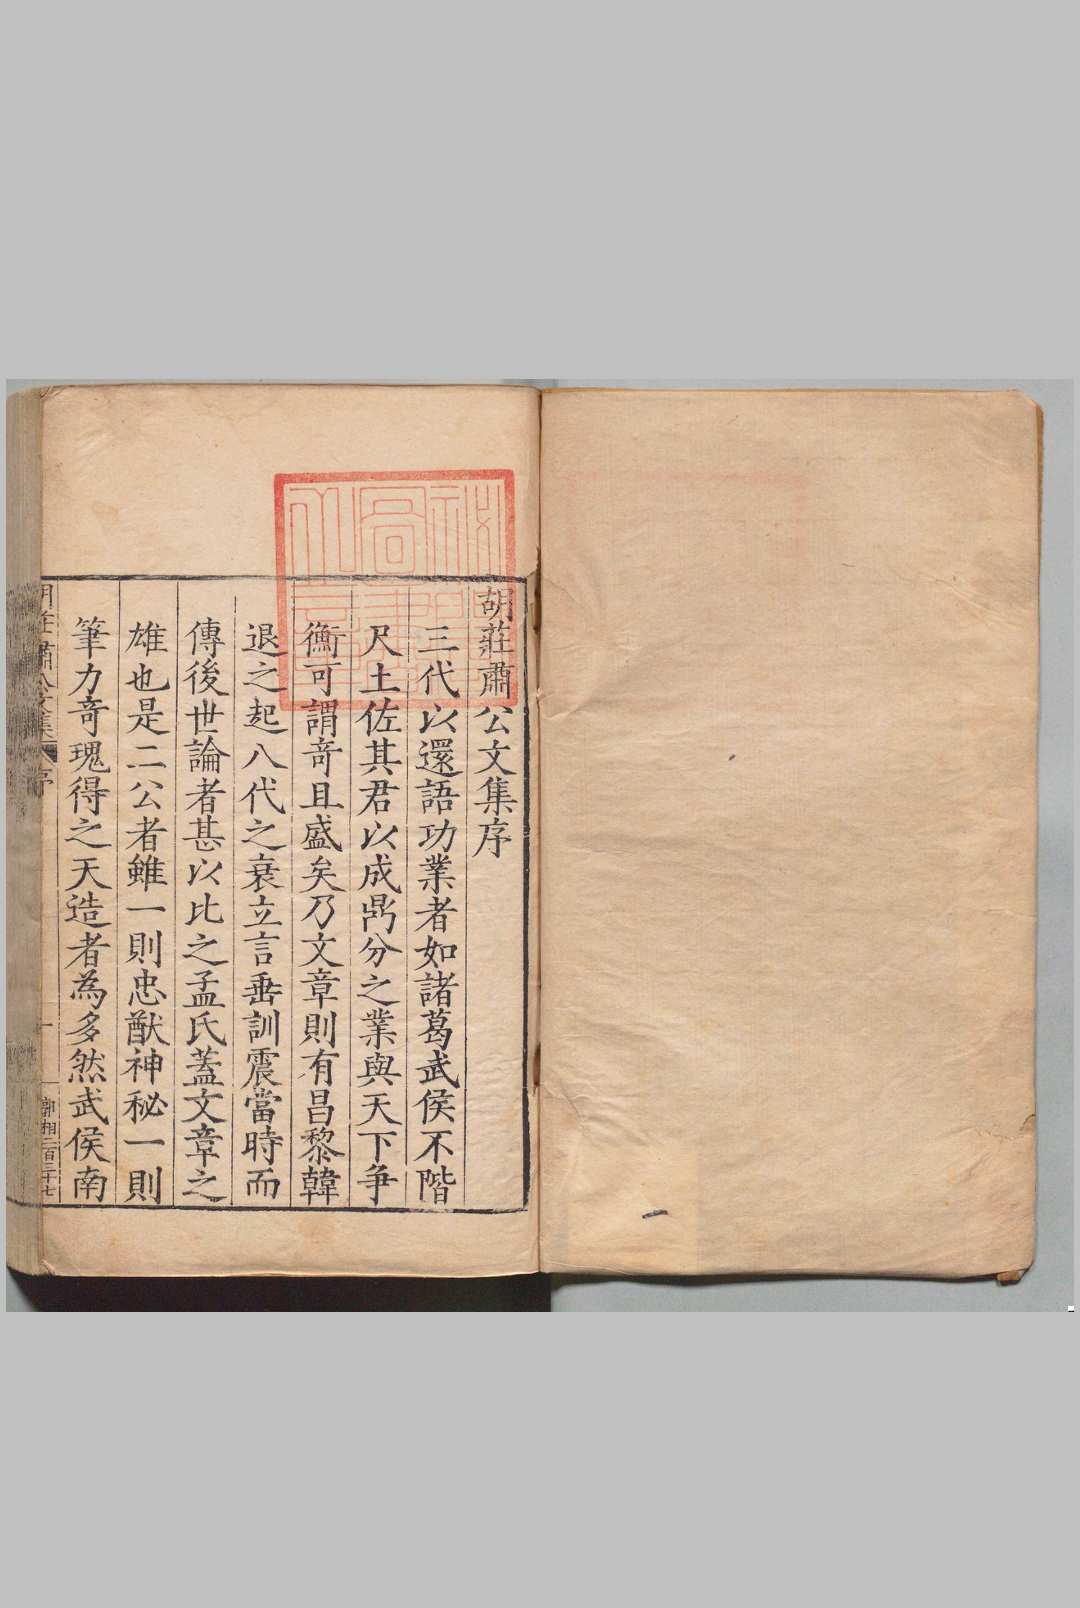 胡莊肅公文集序
三代以還語功業者如諸葛武侯不階
尺土佐其君以成鼎分之業與天下爭
衡可謂奇且盛矣乃文章則有昌黎韓
退之起八代之衰立言垂訓震當時而
傳後世論者甚以比之孟氏蓋文章之
雄也是二公者雖一則忠猷神秘一則
筆力奇瑰得之天造者為多然武侯南
胡莊肅公文集 序 一 郭相二百三十七